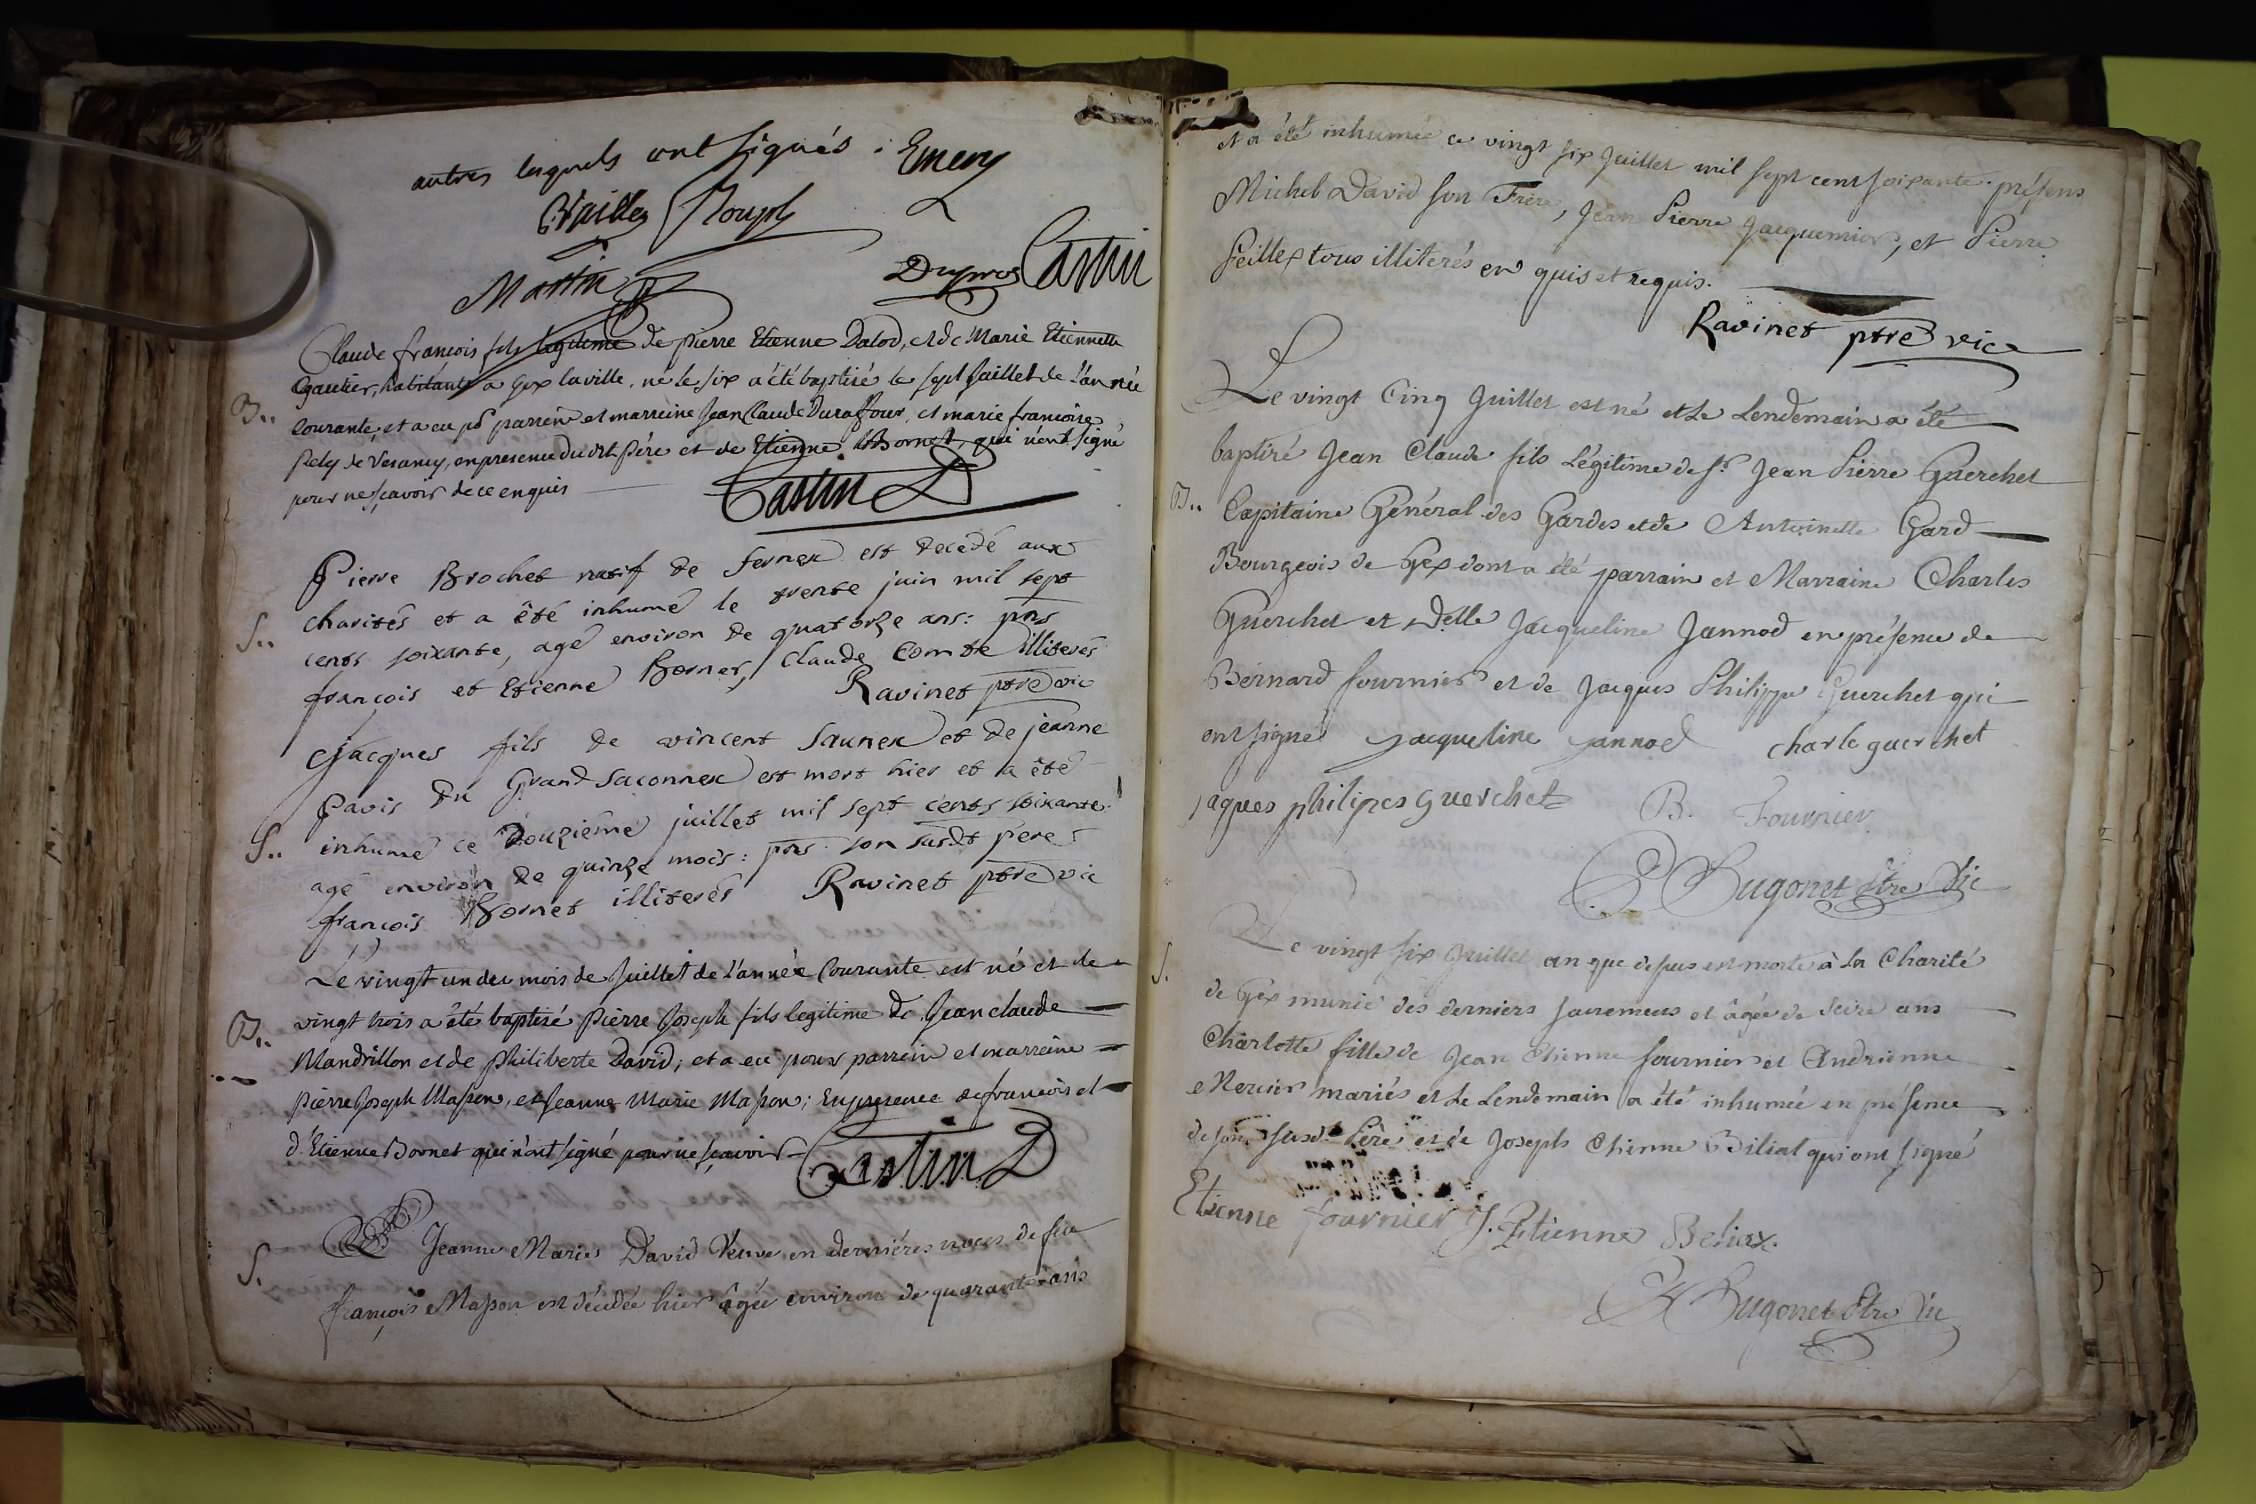 autres lesquels ont signés . Emery
Martin Dupros Castin
Claude francois fils legitime de pierre Etienne Dalod, et de Marie Etiennette
Gautier, habitants a Gex la ville, né le six a été baptisé le sept juillet de l'année
B..
courante, et a eu pr parrein et marreine Jean Claude Duraffour, et marie francoise
de Vesancy, en presence du dit père et de Etienne Bornet, qui n'ont signé
pour ne sçavoir de ce enquis
Castin
Pierre Brochet natif de fernex est decedé aux
charités et a été inhumé le trente juin mil sept
S..
cents soixante, agé environ de quatorze ans: pns
françois et Etienne Bornet, Claude Comte illiterés
Ravinet ptre vic
Jacques fils de vincent Saunex et de jeanne
pavis du Grand Saconnex est mort hier et a été
inhumé ce douzième juillet mil sept cents soixante
S..
agé environ de quinze mois: pns son susdt pere
françois Bornet illiterés Ravinet ptre vic
Le vingt un du mois de Juillet de l'année Courante est né et le
vingt trois a été baptisé pierre Joseph fils legitime de Jean claude
B..
Mandrillon et de philiberte David; et a eu pour parrein et marreine
pierre Joseph Masson, et Jeanne Marie Masson; En presence de francois et
d'Etienne Bornet qui n'ont signé pour ne sçavoir
Castin
S.
Jeanne Marie David Veuve en dernières noces de feu
françois Masson est décédée hier âgée environ de quarante ans
et a été inhumée ce vingt six Juillet mil sept cent soixante. présens
Michel David son Frère, Jean Pierre Jacquemier, et Pierre
Feillex tous illiterés en quis et requis.
Ravinet ptre vic
Le vingt Cinq Juillet est né et Le Lendemain a été
baptisé Jean Claude fils Légitime de Sr. Jean Pierre Guerchet
B..
Capitaine Général des Gardes et de Antoinette Gard
Bourgeois de Gex dont a été parrain et Marraine Charles
Guerchet et Delle Jacqueline Jannod en présence de
Bernard fournier et de Jacques Philippe Guerchet qui
ont signé jacqueline jannod charle guerchet
jaques philipes Guerchet B. Fournier
Dugonet Ptre Vic
S.
Le vingt six Juillet an que dessus est morte à la Charité
de Gex munie des derniers sacremens et âgée de seize ans
Charlotte fille de Jean Etienne fournier et Andrienne
Mercier mariés et Le Lendemain a été inhumée en présence
de son susd. Père et de Joseph Etienne Béliat qui ont signé
Etienne fournier J. Etienne Beliax.
Dugonet Ptre Vic